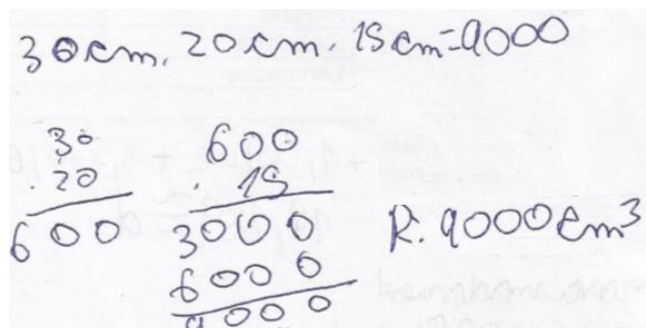 30cm. 20cm. 15cm=9000
30
.20
600
600
.15
3000
6000
9000
R: 9000cm³